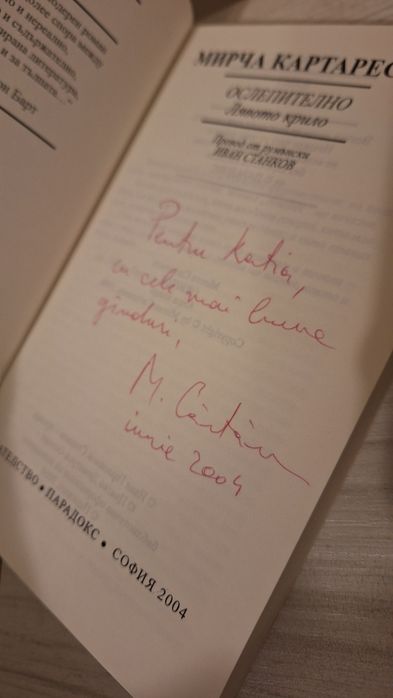 модерен роман
более спора между
но и нереално,
о и съдържателно,
ирана литература,
и за тълпата..."
он Барт
МИРЧА КАРТАРЕС
ОСЛЕПИТЕЛНО
Лявото крило
Превод от румънски
ИВАН СТАНКОВ
Pentru Katia,
cu cele mai bune
gânduri,
M. Cărtăr
iunie 2004
АТЕЛСТВО • ПАРАДОКС • СОФИЯ 2004